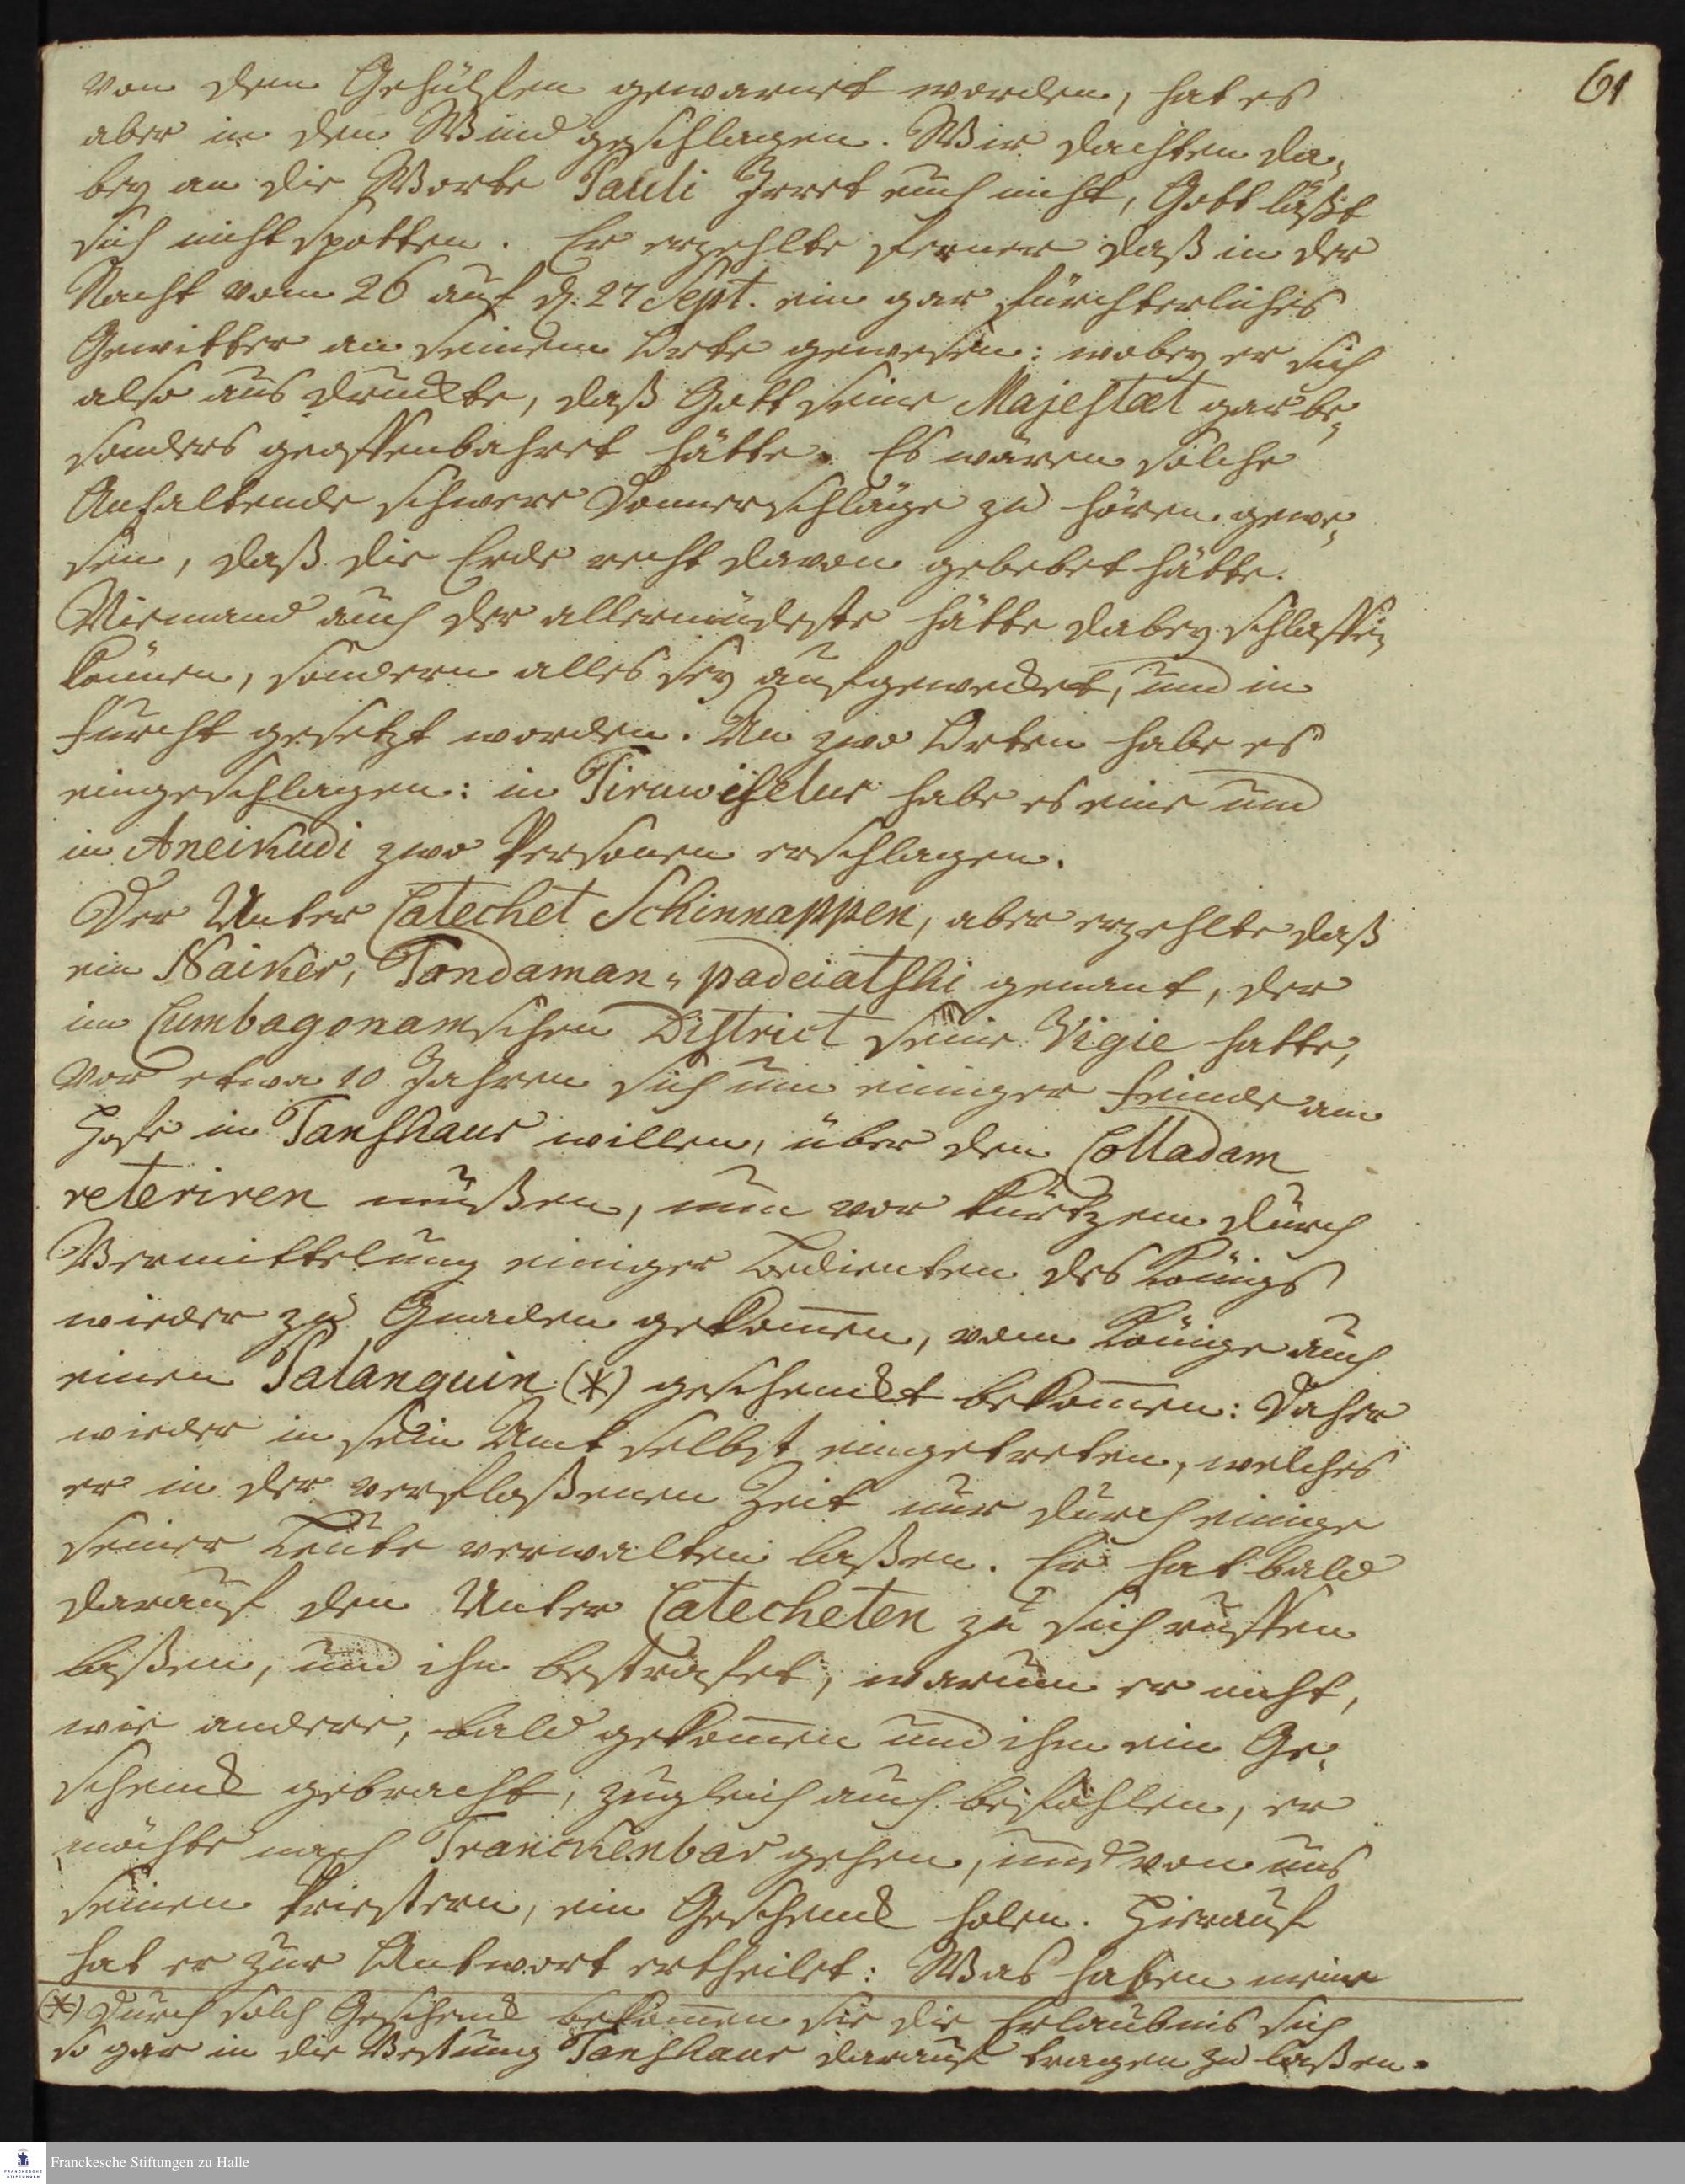 61
von dem Gehülfen gewarnet worden, hat es
aber in den Wind geschlagen. Wir dachten da„
bey an die Worte Pauli Irret euch nicht, Gott läßt
sich nicht spotten. Er erzehlte ferner daß in der
Nacht vom 26 auf d. 27 Sept. ein gar fürchterliches
Gewitter an seinem Orte gewesen: wobey er sich
also ausdruckte, daß Gott seine Majestæt gar be„
sonders geoffenbahret hätte. Es wären solche
Anhaltende schwere Donnerschläge zu hören gewe„
sen, daß die Erde recht davon gebebet hätte.
Niemand auch der allermüdeste hätte dabey schlaffen
können, sondern alles sey aufgewecket, und in
Furcht gesetzt worden. An zwo Orten habe es
eingeschlagen: in Tiruwiselur habe es eine und
in Aneikudi zwo Personen erschlagen.
Der Unter Catechet Schinnappen, aber erzehlte daß
ein Naiker, Tondaman„padeiatshi genant, der
im Cumbagonamschen District seine Vigie hatte,
vor etwa 10 Jahren sich um einiger Feinde am
Hofe in Tanshaur willen, über den Colladam
reteriren müßen, nun vor kurtzem durch
Vermittelung einiger Bedienten des Königs
wieder zu Gnaden gekom̅en, vom Könige auch
einen Palanquin (*) geschenckt bekom̅en: Daher
wieder in sein Amt selbst eingetreten, welches
er in der verfloßenen Zeit nur durch einige
seiner Leute verwalten laßen. Er hat bald
darauf den Unter Catecheten zu sich ruffen
laßen, und ihn bestrafet, warum er nicht,
wie andere, bald gekom̅en und ihm ein Ge„
schenck gebracht, zugleich auch befohlen, er
möchte nach Tranckenbar gehen, und von uns
seinen Priestern, ein Geschenck holen. Hierauf
hat er zur Antwort ertheilet: Was haben meine
(*) Durch solch Geschenck bekom̅en sie die Erlaubnis sich
so gar in die Vestung Tanshaur darauf tragen zu laßen.
Franckesche Stiftungen zu Halle
FRANCKESCHE
STIFTUNGEN